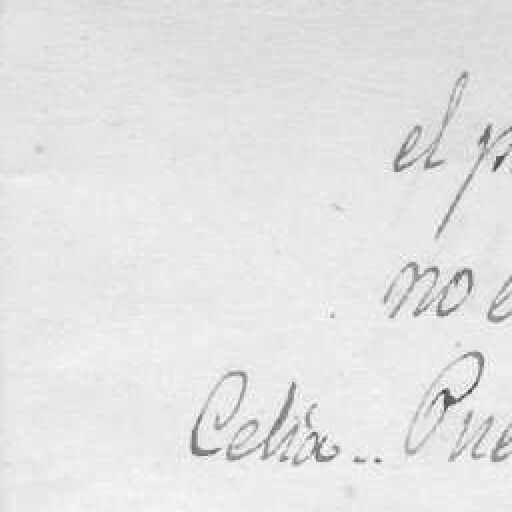 el p
no e
Celia.. Pue